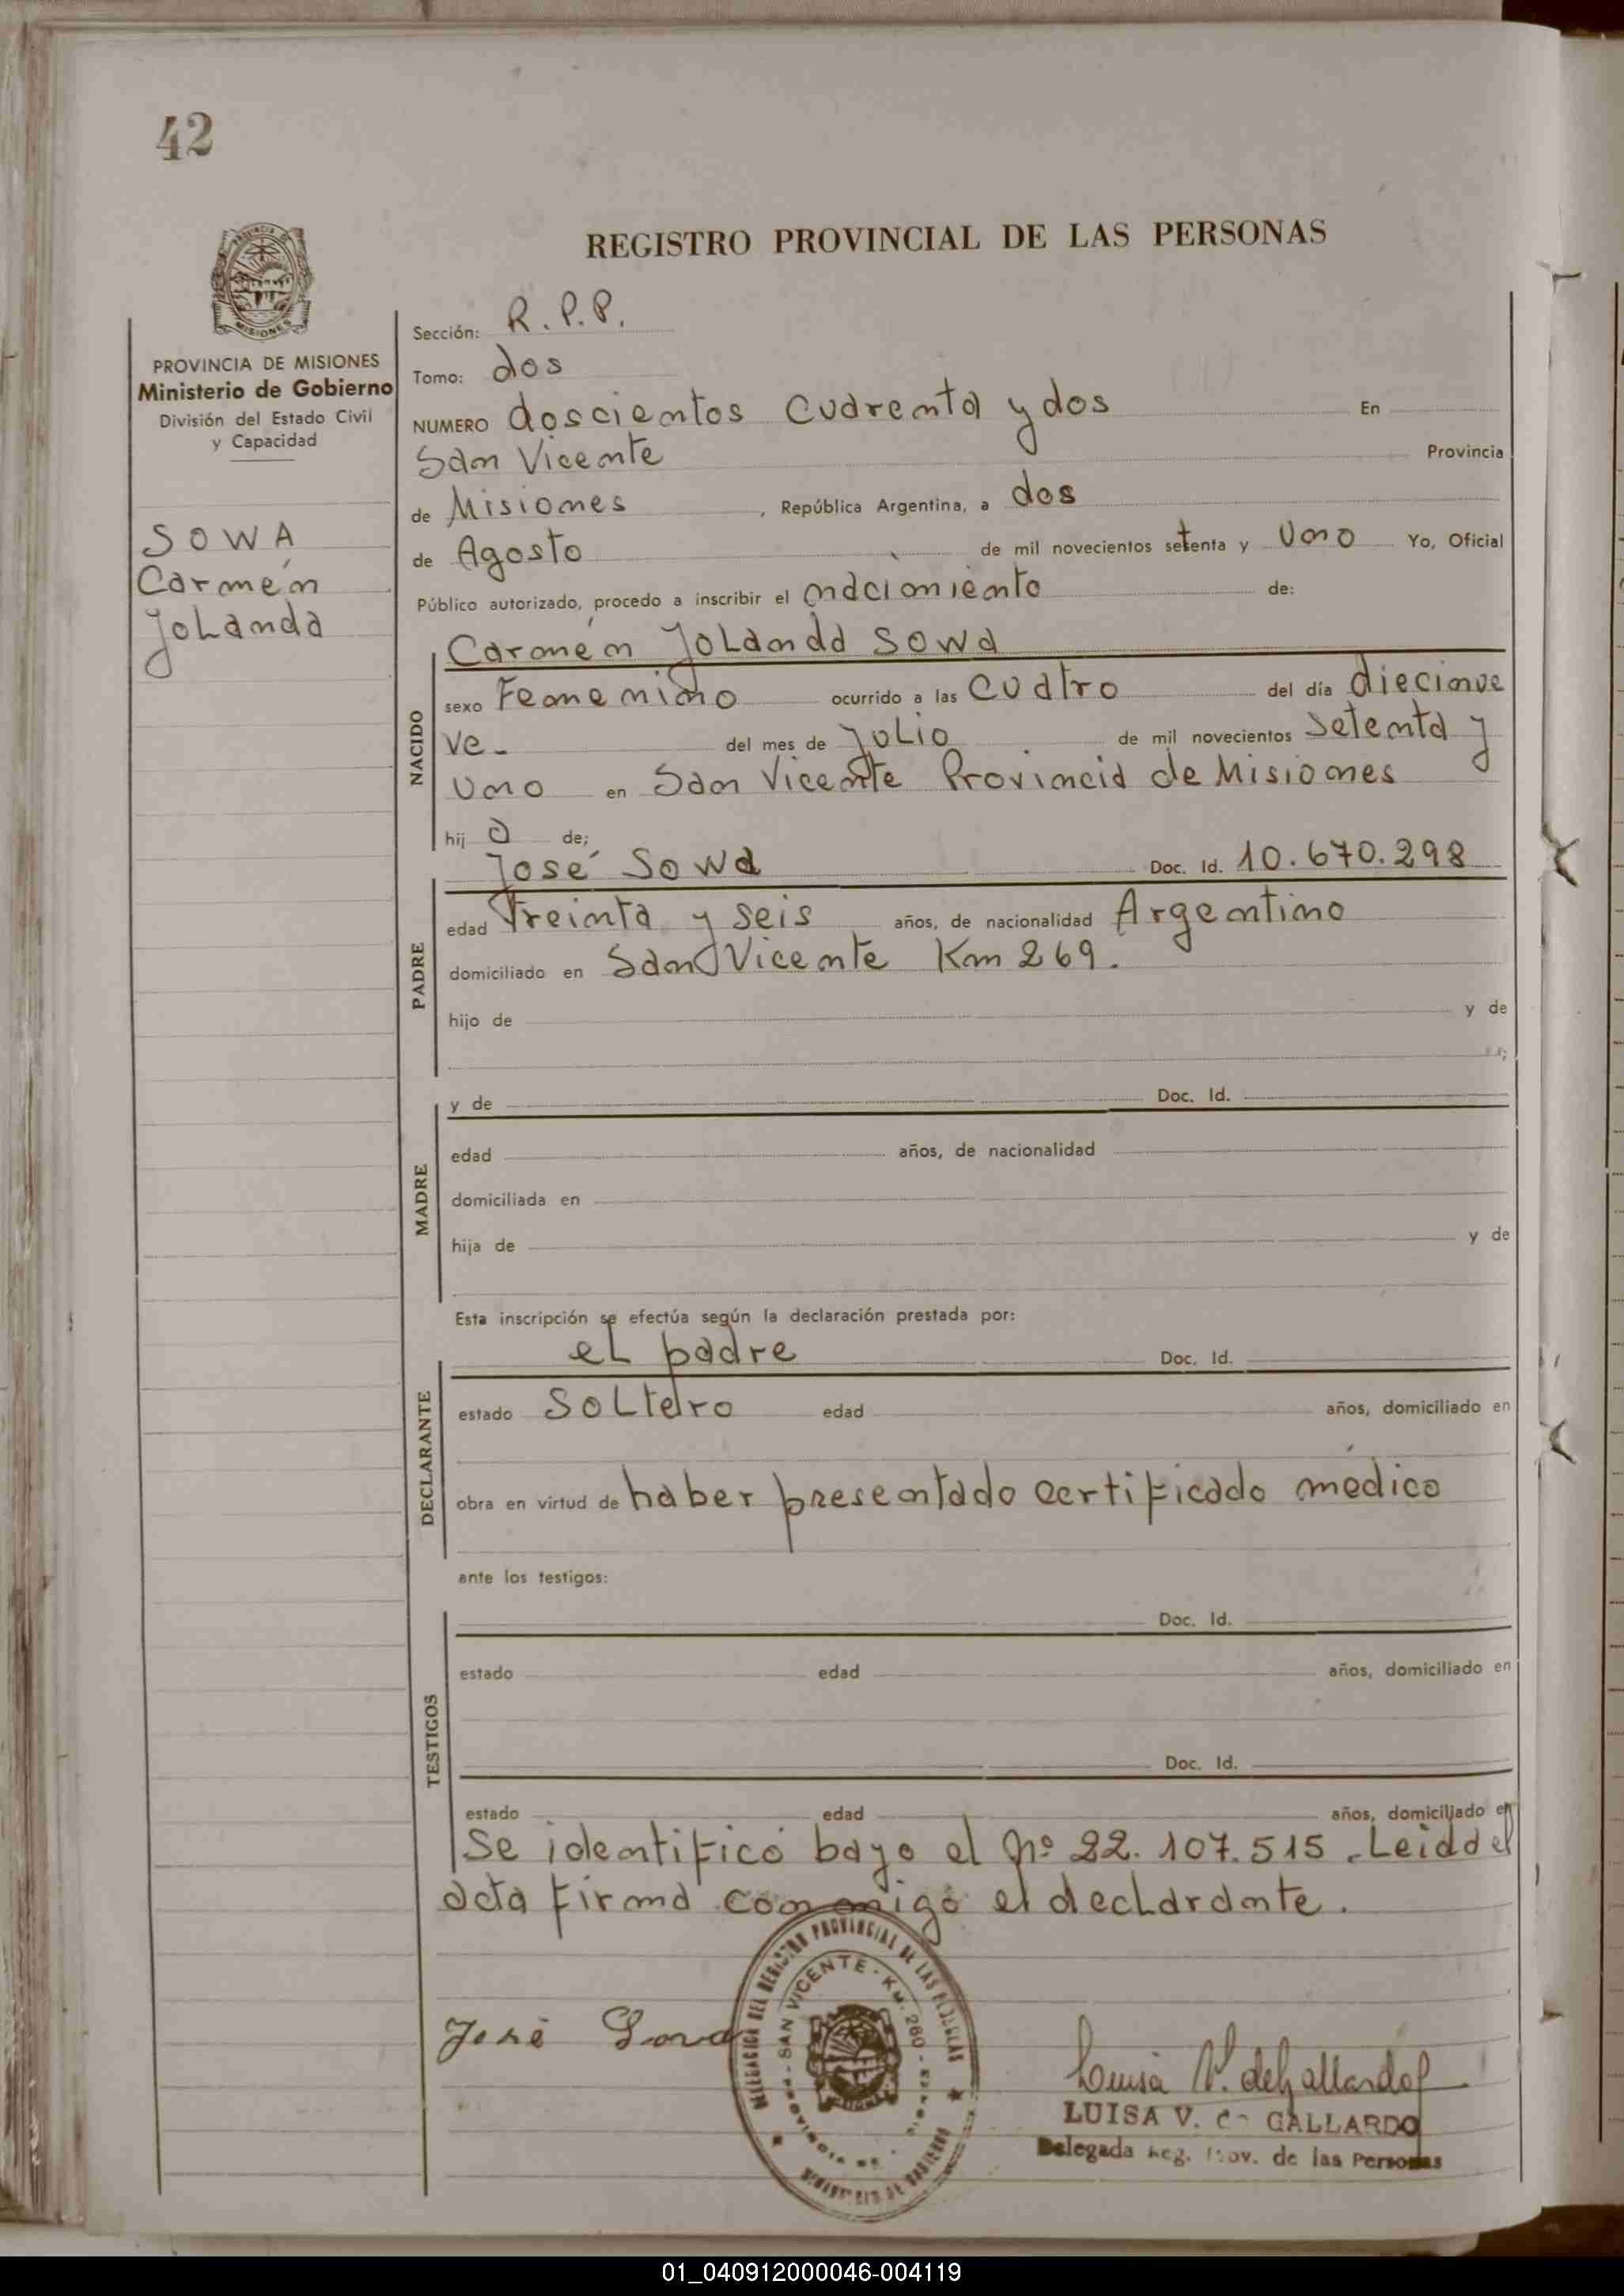 42
REGISTRO PROVINCIAL DE LAS PERSONAS
MISIONES
PROVINCIA DE MISIONES
Ministerio de Gobierno
División del Estado Civil
y Capacidad
SOWA
Carmén
Jolanda
Sección: R.P.P.
Tomo: dos
NUMERO doscientos cuarenta y dos En
San Vicente Provincia
de Misiones, República Argentina, a dos
de Agosto de mil novecientos setenta y Uno Yo, Oficial
Público autorizado, procedo a inscribir el nacimiento de:
NACIDO
Carmén Jolanda Sowa
sexo Femenino ocurrido a las cuatro del día diecinue
ve- del mes de Julio de mil novecientos setenta y
Uno en San Vicente Provincia de Misiones
hij a de;
PADRE
José Sowa Doc. Id. 10.670.298
edad treinta y seis años, de nacionalidad Argentino
domiciliado en San Vicente Km 269.
hijo de y de
MADRE
y de Doc. Id.
edad años, de nacionalidad
domiciliada en
hija de y de
Esta inscripción se efectúa según la declaración prestada por:
DECLARANTE
el padre Doc. Id.
estado Solteiro edad años, domiciliado en
obra en virtud de haber presentado certificado médico
ante los testigos:
TESTIGOS
Doc. Id.
estado edad años, domiciliado en
Doc. Id.
estado edad años, domiciliado en
Se identificó bajo el nº 22.107.515. Leida el
acta firma conmigo el declarante.
DELEGACION DEL REGISTRO PROVINCIAL DE LAS PERSONAS
SAN VICENTE - KM. 260 -
MINISTERIO DE GOBIERNO
José Sova
Luisa V. de Gallardo
LUISA V. de GALLARDO
Delegada Reg. Prov. de las Personas
01_040912000046-004119